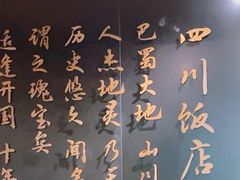 四川饭店
巴蜀大地 山川
人杰地灵 乃
历史悠久 闻名
谓之瑰宝矣
适逢开国十年